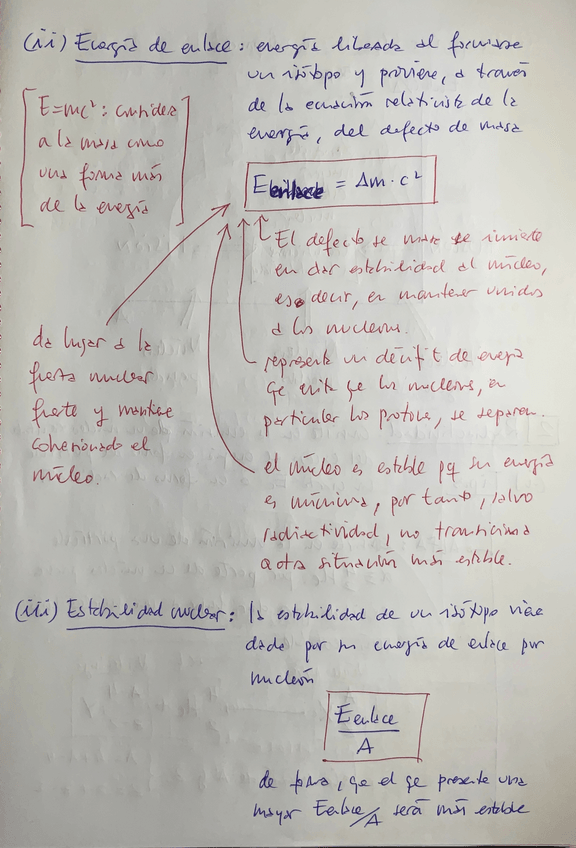 (ii) Energía de enlace: energía liberada al formarse
un isótopo y proviene, a través
de la ecuación relativista de la
energía, del defecto de masa
E=mc²: considera
a la masa como
una forma más
de la energía
Eenlace = Δm · c²
El defecto de masa se invierte
en dar estabilidad al núcleo,
es decir, en mantener unidos
a los nucleones.
representa un déficit de energía
qe evita qe los nucleones, en
particular los protones, se separen.
el núcleo es estable pq su energía
es mínima, por tanto, salvo
radiactividad, no transiciona
a otra situación más estable.
da lugar a la
fuerza nuclear
fuerte y mantiene
cohesionado el
núcleo.
(iii) Estabilidad nuclear: la estabilidad de un isótopo viene
dada por su energía de enlace por
nucleón
Eenlace
A
de forma, qe el qe presente una
mayor Eenlace/A será más estable